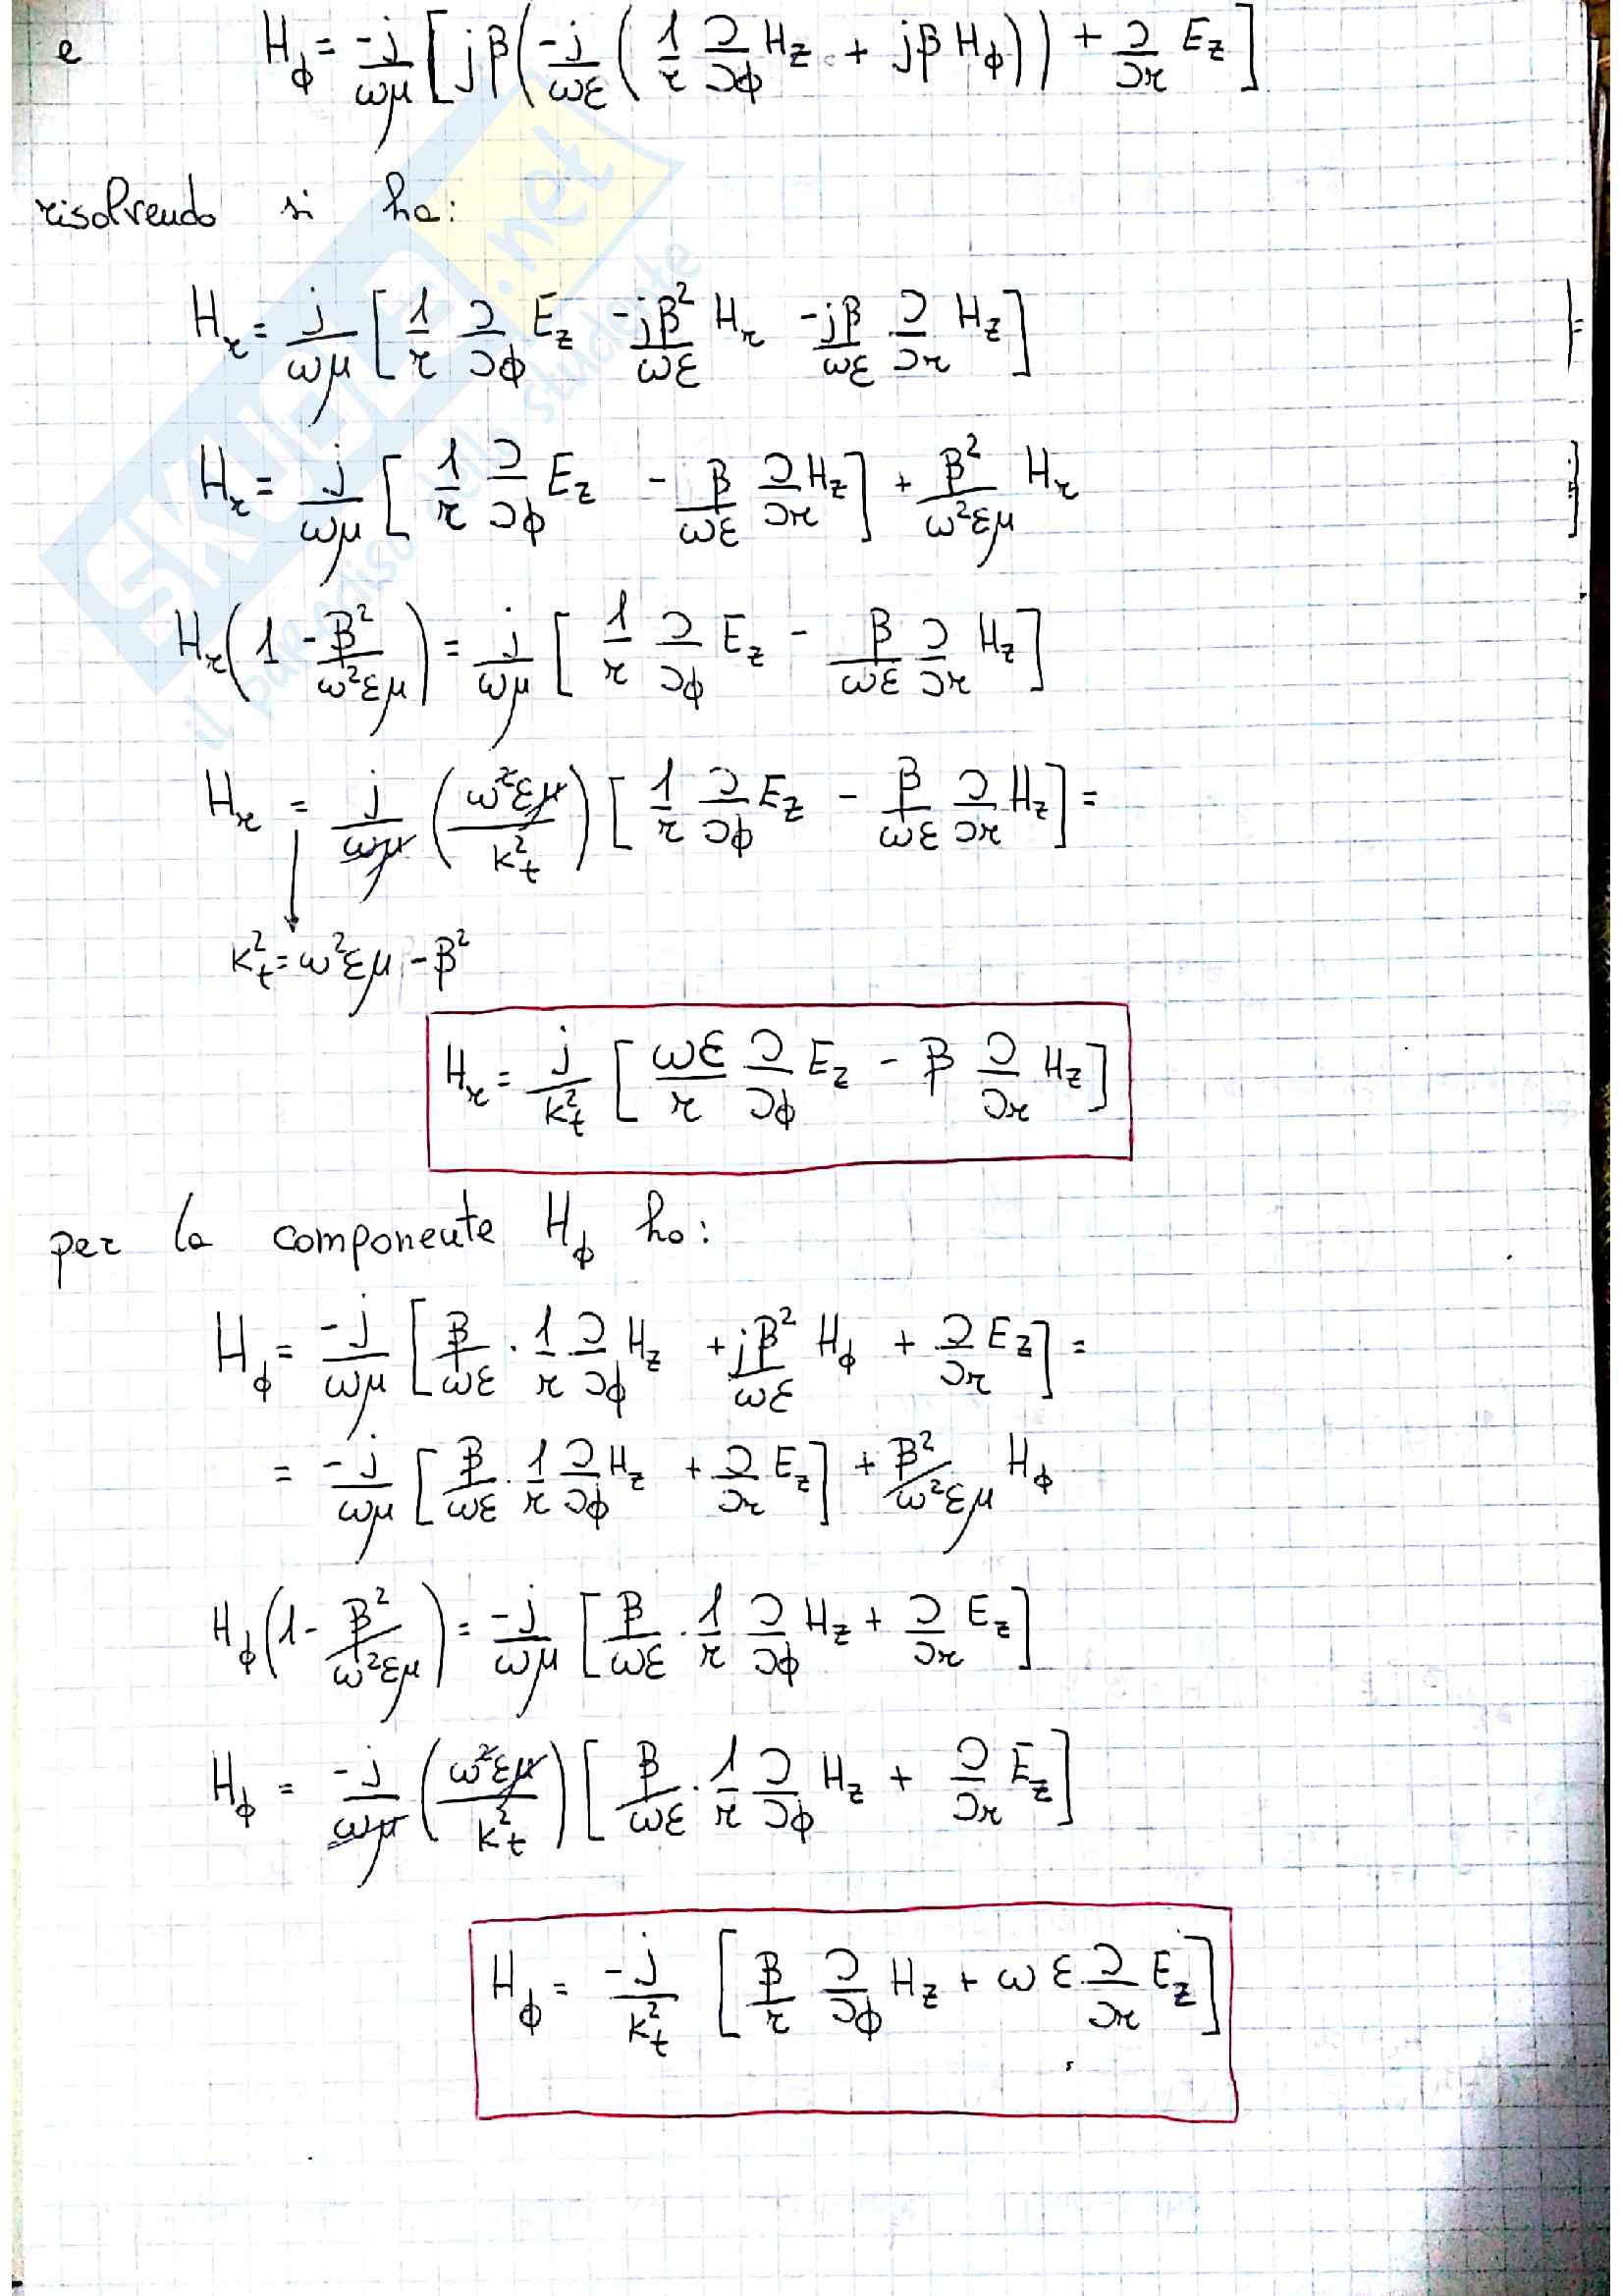 e H_ϕ = -j/ωμ [ jβ ( -j/ωε ( 1/r ∂/∂ϕ H_z + jβ H_ϕ ) ) + ∂/∂r E_z ]
risolvendo si ha:
H_r = j/ωμ [ 1/r ∂/∂ϕ E_z -jβ²/ωε H_r -jβ/ωε ∂/∂r H_z ]
H_r = j/ωμ [ 1/r ∂/∂ϕ E_z - β/ωε ∂/∂r H_z ] + β²/ω²εμ H_r
H_r ( 1 - β²/ω²εμ ) = j/ωμ [ 1/r ∂/∂ϕ E_z - β/ωε ∂/∂r H_z ]
H_r = j/ωμ ( ω²εμ/k_t² ) [ 1/r ∂/∂ϕ E_z - β/ωε ∂/∂r H_z ] =
k_t² = ω²εμ - β²
H_r = j/k_t² [ ωε/r ∂/∂ϕ E_z - β ∂/∂r H_z ]
per la componente H_ϕ ho:
H_ϕ = -j/ωμ [ β/ωε · 1/r ∂/∂ϕ H_z + jβ²/ωε H_ϕ + ∂/∂r E_z ] =
= -j/ωμ [ β/ωε · 1/r ∂/∂ϕ H_z + ∂/∂r E_z ] + β²/ω²εμ H_ϕ
H_ϕ ( 1 - β²/ω²εμ ) = -j/ωμ [ β/ωε · 1/r ∂/∂ϕ H_z + ∂/∂r E_z ]
H_ϕ = -j/ωμ ( ω²εμ/k_t² ) [ β/ωε · 1/r ∂/∂ϕ H_z + ∂/∂r E_z ]
H_ϕ = -j/k_t² [ β/r ∂/∂ϕ H_z + ωε ∂/∂r E_z ]
SKUOLA.net
il paradiso dello studente